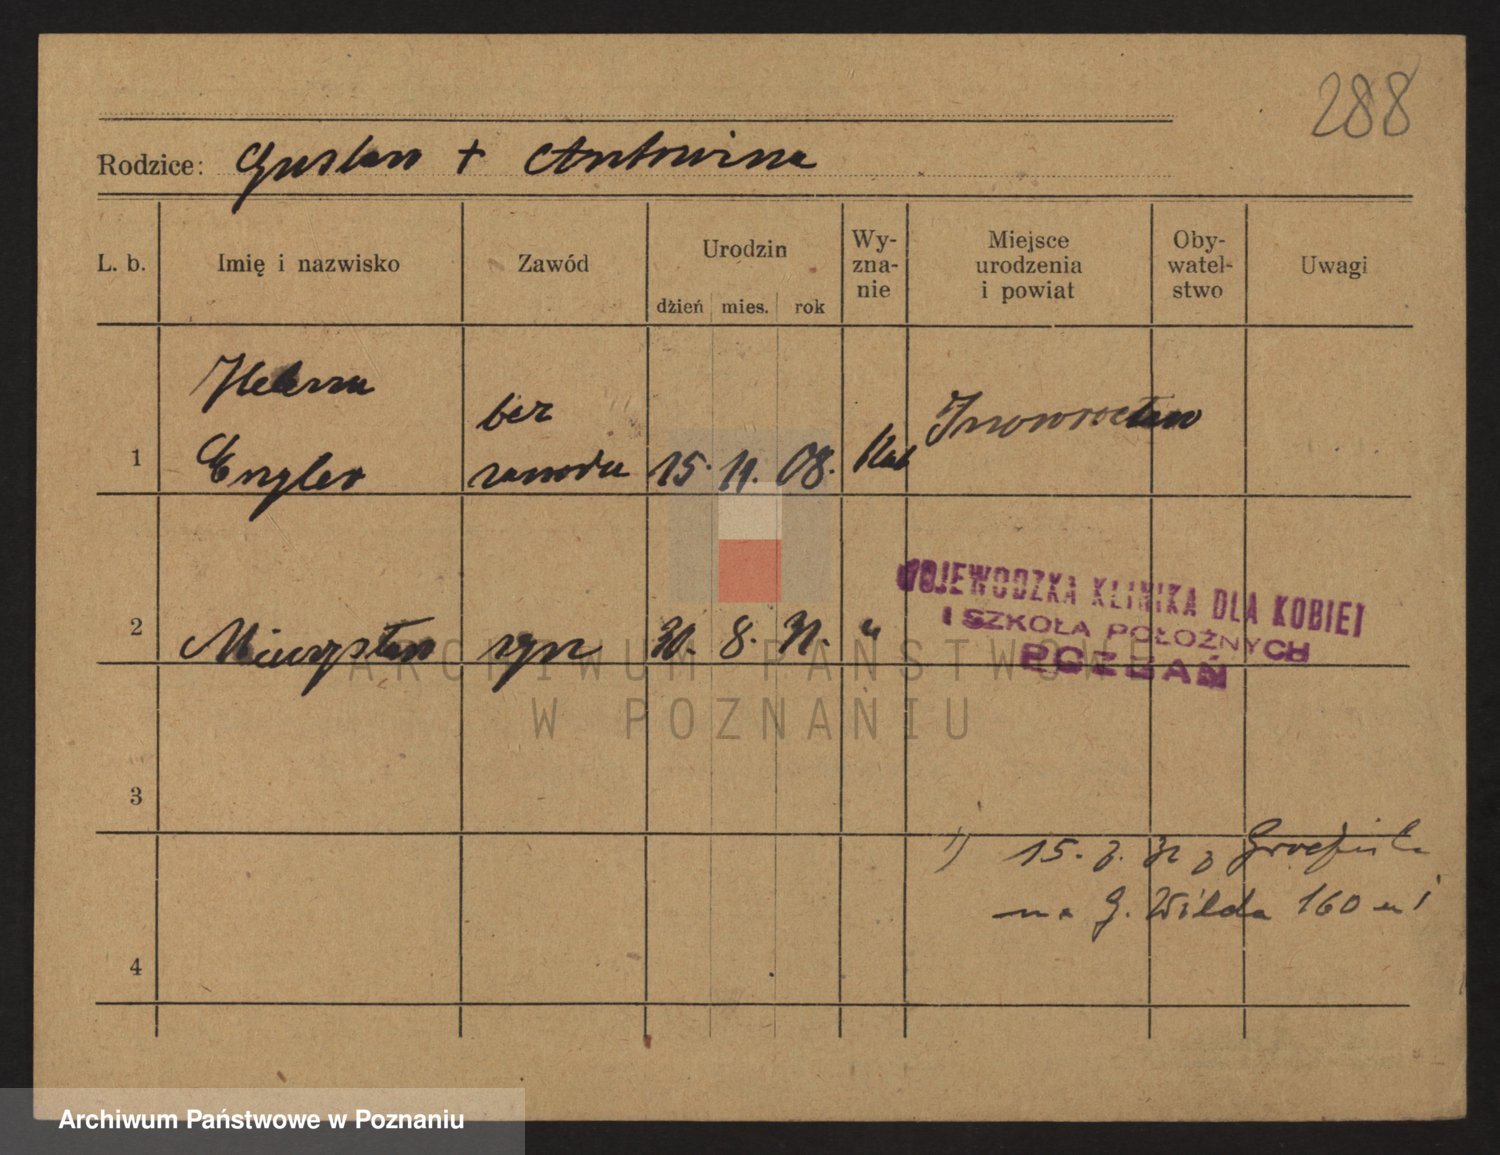 288
Rodzice: Gustaw + Antonina
L. b. Imię i nazwisko Zawód Urodzin dzień mies. rok Wy-zna-nie Miejsce urodzenia i powiat Oby-watel-stwo Uwagi
Helena bez
1 Engler zawodu 15. 11. 08. Kat Inowrocław
WOJEWODZKA KLINIKA DLA KOBIET
I SZKOŁA POŁOŻNYCH
POZNAŃ
2 Mieczysław syn 30. 8. 31. "
ARCHIWUM PAŃSTWOWE
W POZNANIU
3
1) 15. 3. 32 z
na G. Wilda 160 m 1
4
Archiwum Państwowe w Poznaniu